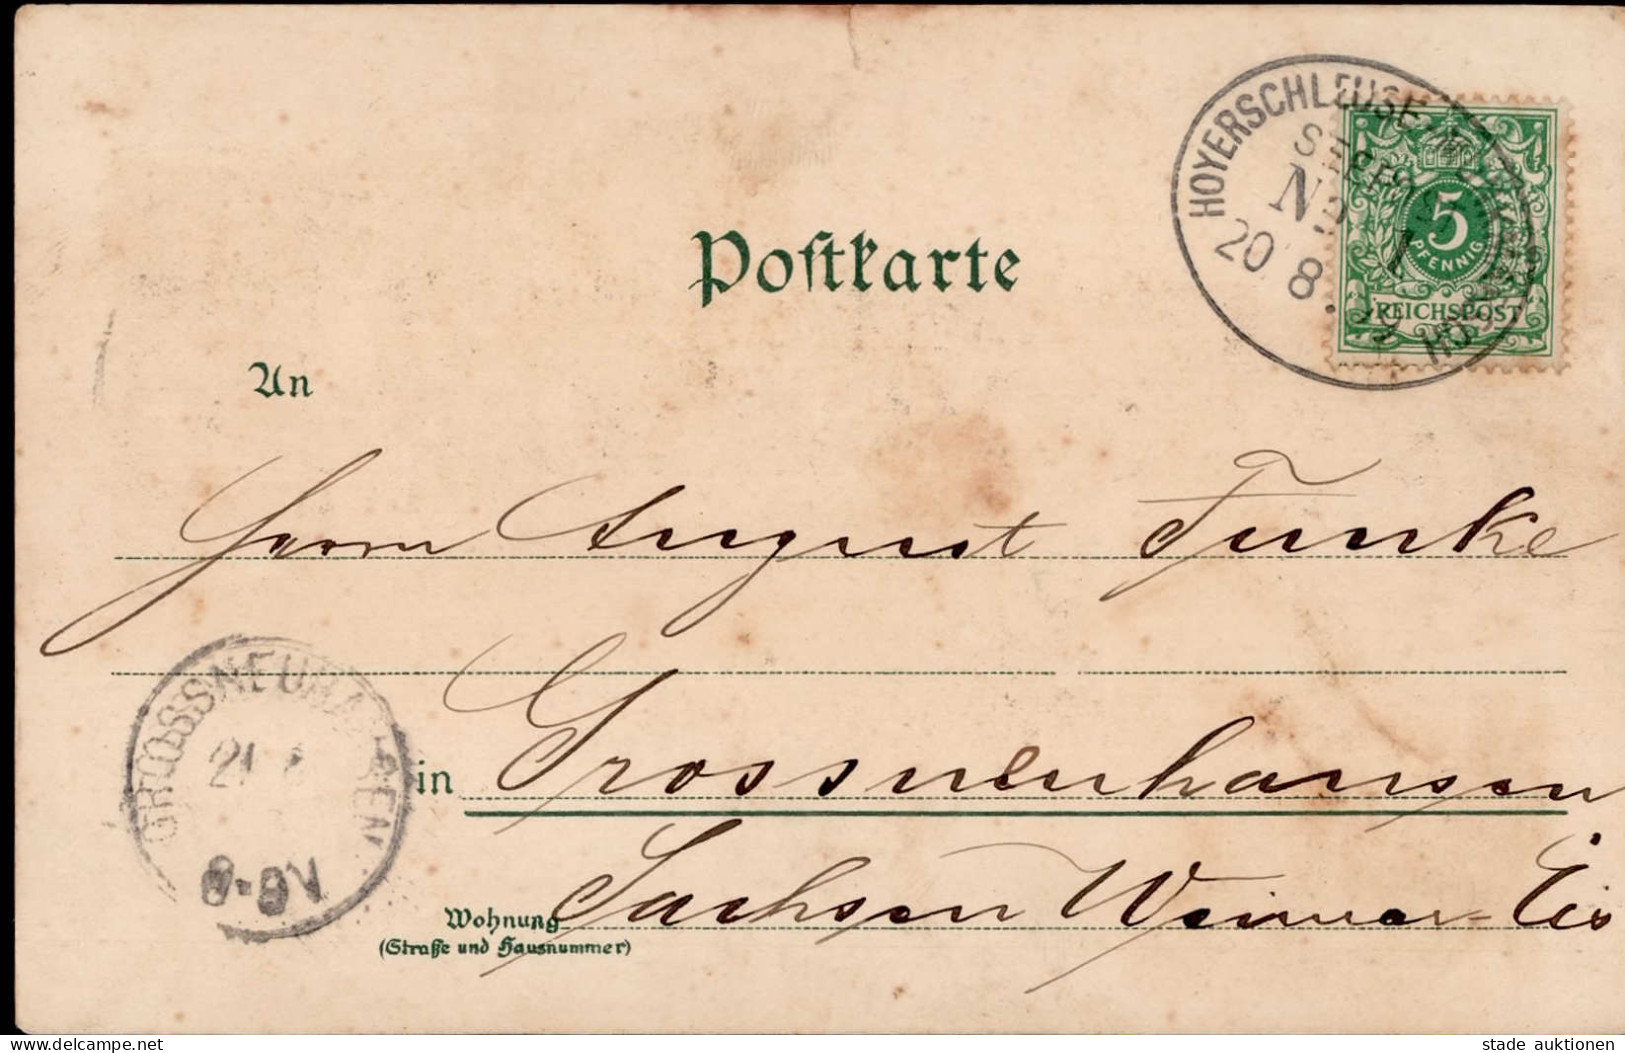 HOYERSCHLEUSE-MUN
20 8.
5
PFENNIG
REICHSPOST
Postkarte
An
Herrn August Funke
GROSSNEUHAUSEN
21
8-9V
in Grossneuhausen
Sachsen Weimar-Eis
Wohnung
(Straße und Hausnummer)
delcampe.net
stade auktionen